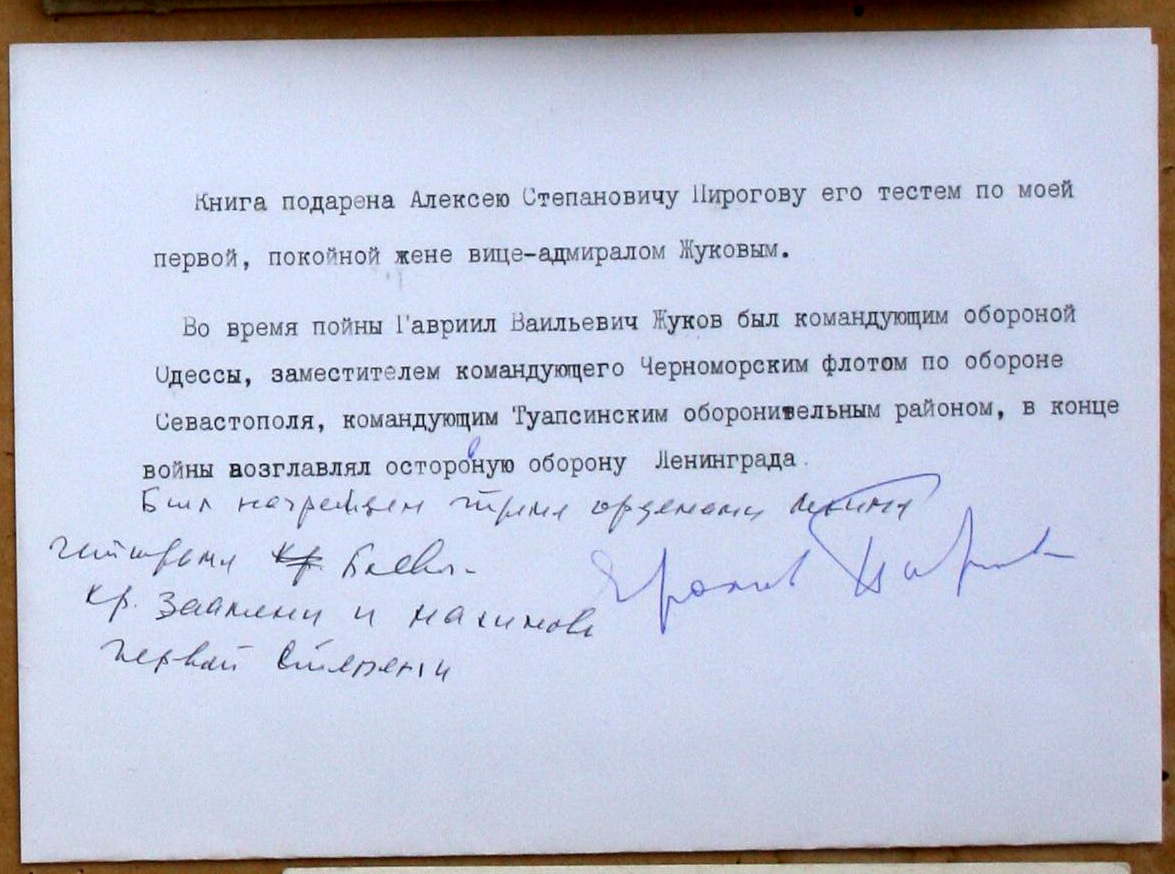 Книга подарена Алексею Степановичу Пирогову его тестем по моей
первой, покойной жене вице-адмиралом Жуковым.
Во время пойны Гавриил Ваильевич Жуков был командующим обороной
Одессы, заместителем командующего Черноморским флотом по обороне
Севастополя, командующим Туапсинским оборонительным районом, в конце
войны возглавлял осторовную оборону Ленинграда.
Был награжден тремя орденами Ленина
четырьмя Кр. Боев.
Кр. Знамени и Нахимова
первой степени